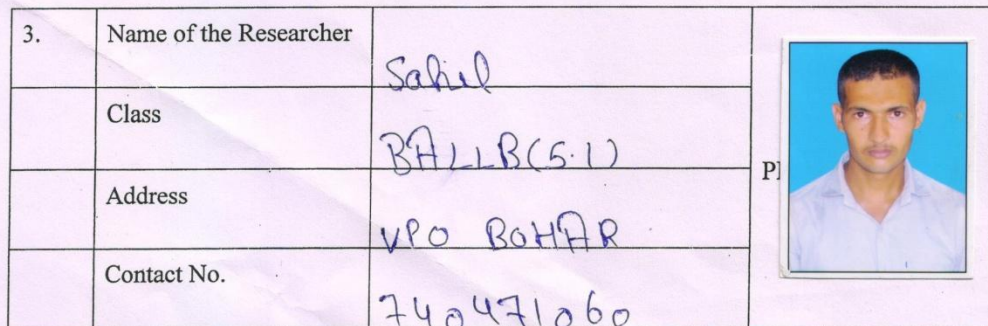 3. Name of the Researcher Sahil
Class BALLB(5.1)
Address VPO BOHAR
Contact No. 740471060